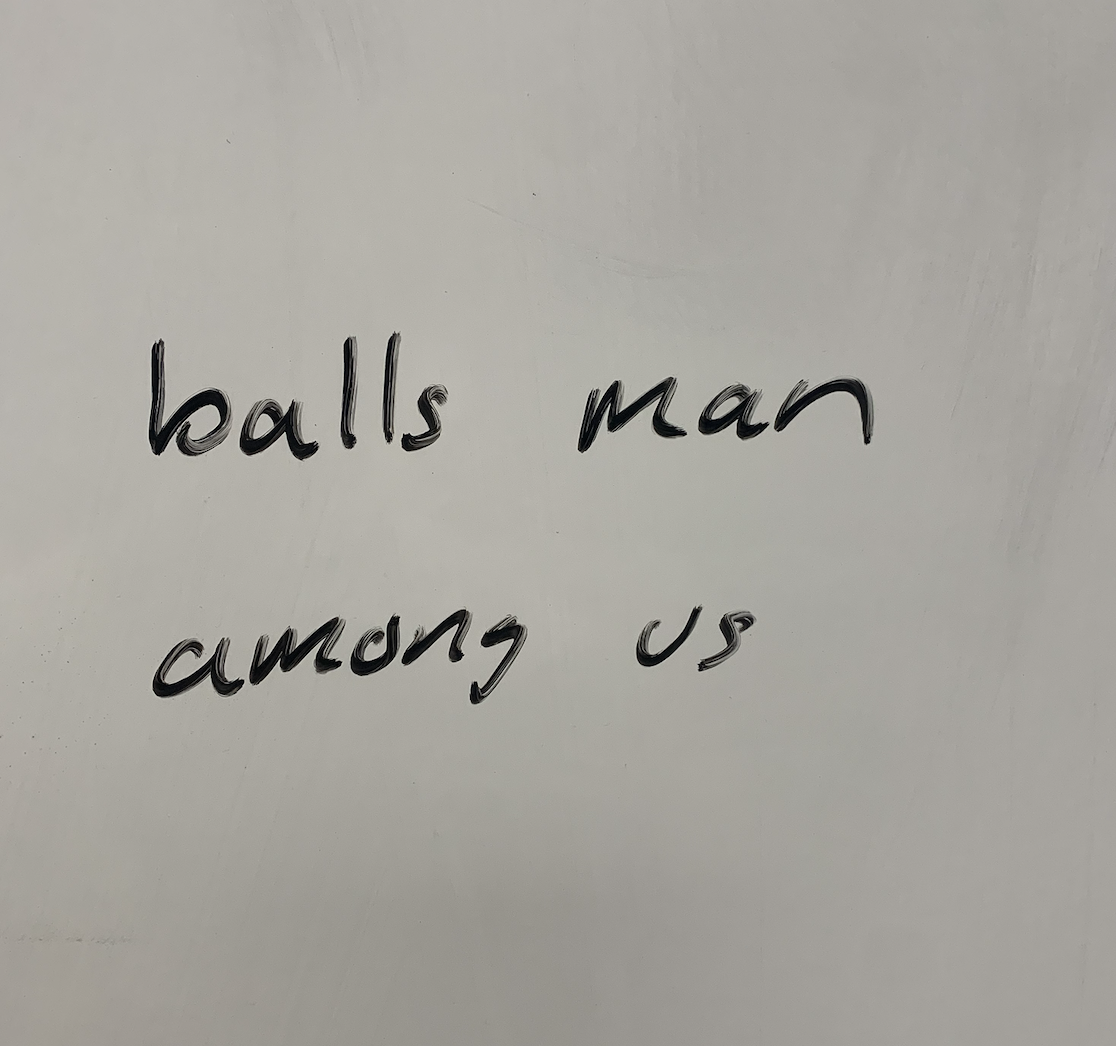 balls man
among us